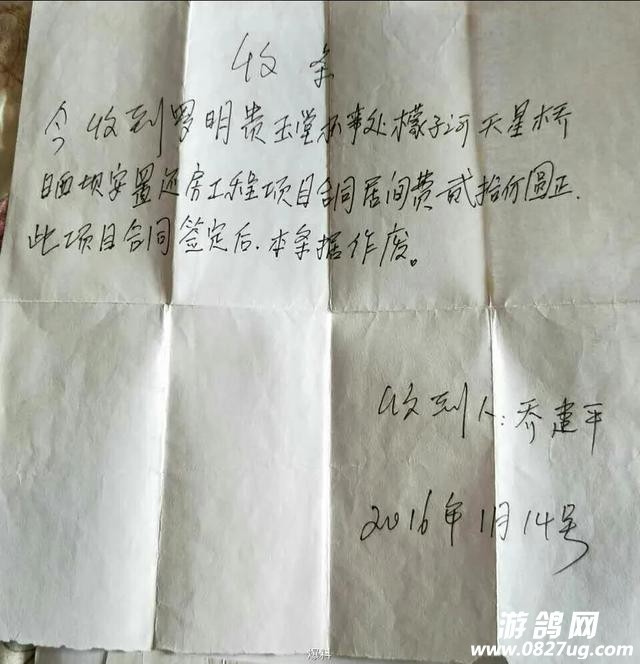 收条
今收到罗明贵玉堂办事处檬子河天星桥
晒坝安置还房工程项目合同居间费贰拾仟圆正.
此项目合同签定后.本条据作废。
收到人:乔建平
2016年1月14号
爆料
游鸽网
www.0827ug.com